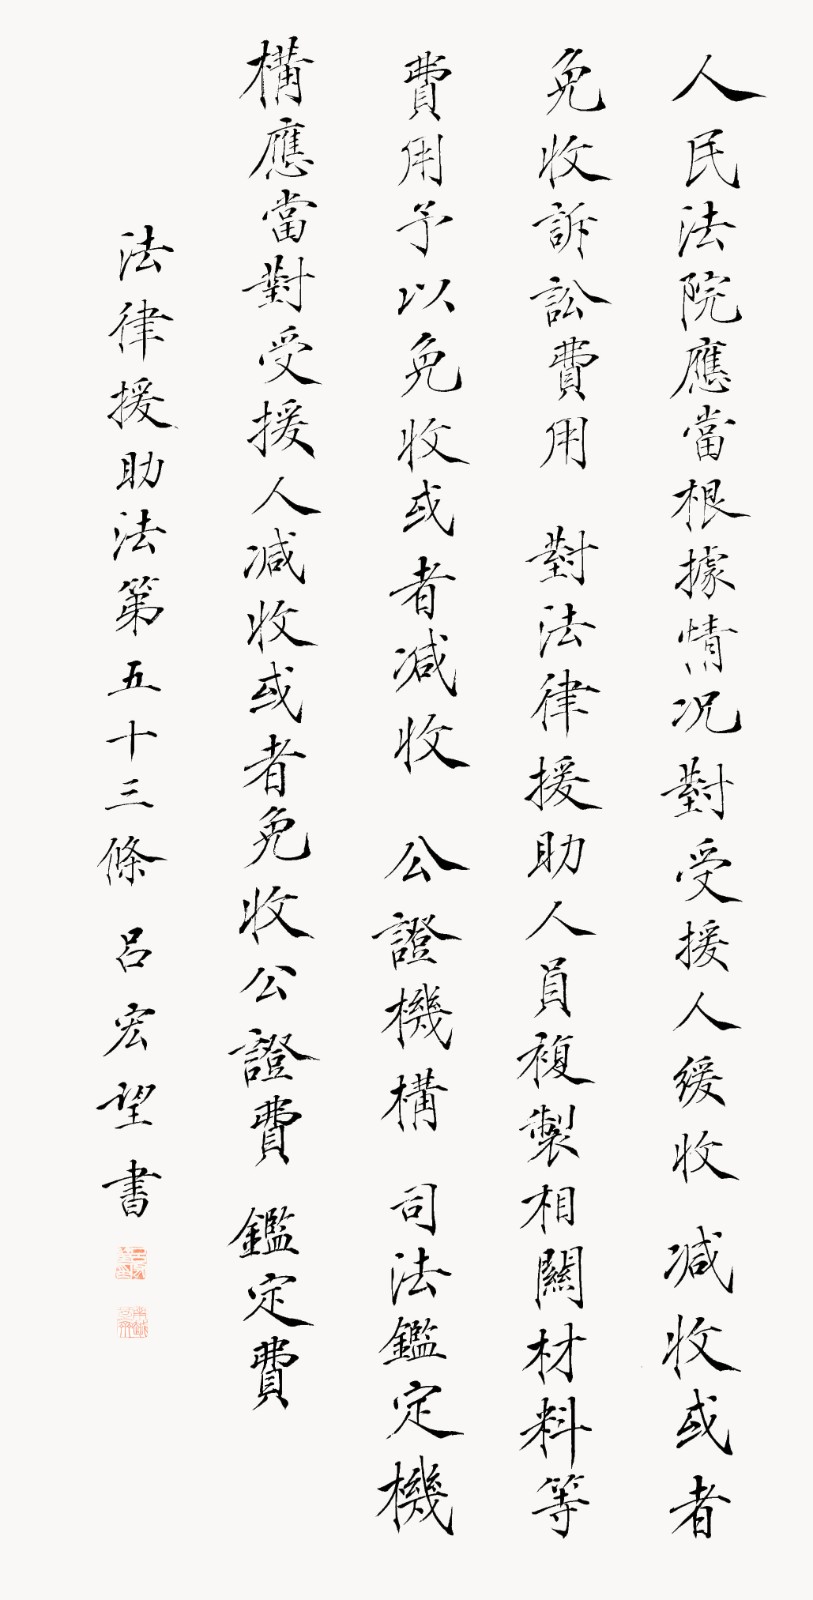 人民法院應當根據情况對受援人緩收 减收或者
免收訴訟費用 對法律援助人員複製相關材料等
費用予以免收或者减收 公證機構 司法鑑定機
構應當對受援人减收或者免收公證費 鑑定費
法律援助法第五十三條 呂宏望書